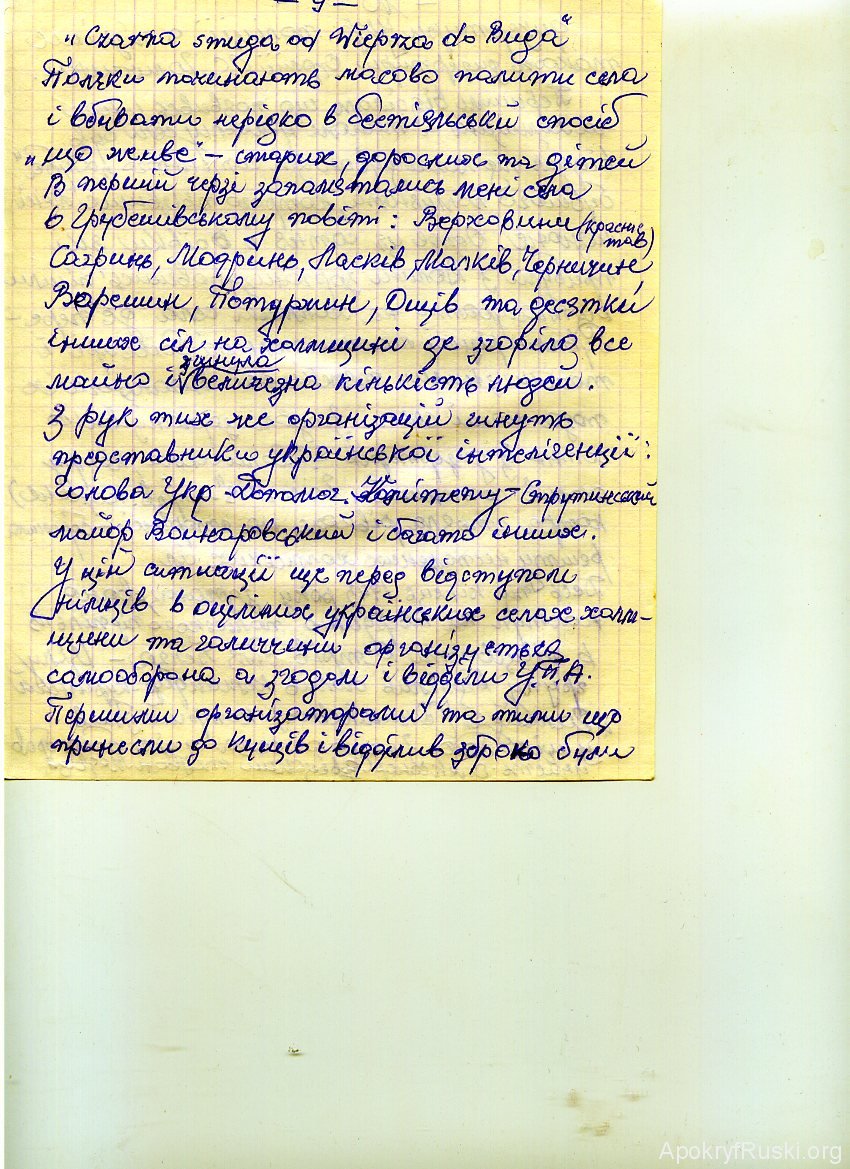 — 9 —
„Czarna smuga od Wieprza do Buga"
Поляки починають масово палити села
і вбивати нерідко в бестіяльський спосіб
„що живе" – старих, дорослих та дітей
В першій черзі запам'ятались мені села
в Грубешівському повіті: Верховини (Красни-
став)
Сагринь, Модринь, Ласків, Малків, Черничин,
Варешин, Потуржин, Ощів та десятки
інших сіл на Холмщині де згоріло все
згинула
майно і величезна кількість людей.
З рук тих же організацій гинуть
представники української інтелігенції:
Голова Укр. Допомог. Комітету – Струтинський
майор Войнаровський і багато інших.
У цій ситуації ще перед відступом
німців в оцілілих українських селах Холм-
щини та Галиччини організується
самооборона а згодом і відділи У.П.А.
Першими організаторами та тими що
принесли до кущів і відділів зброю були
ApokryfRuski.org